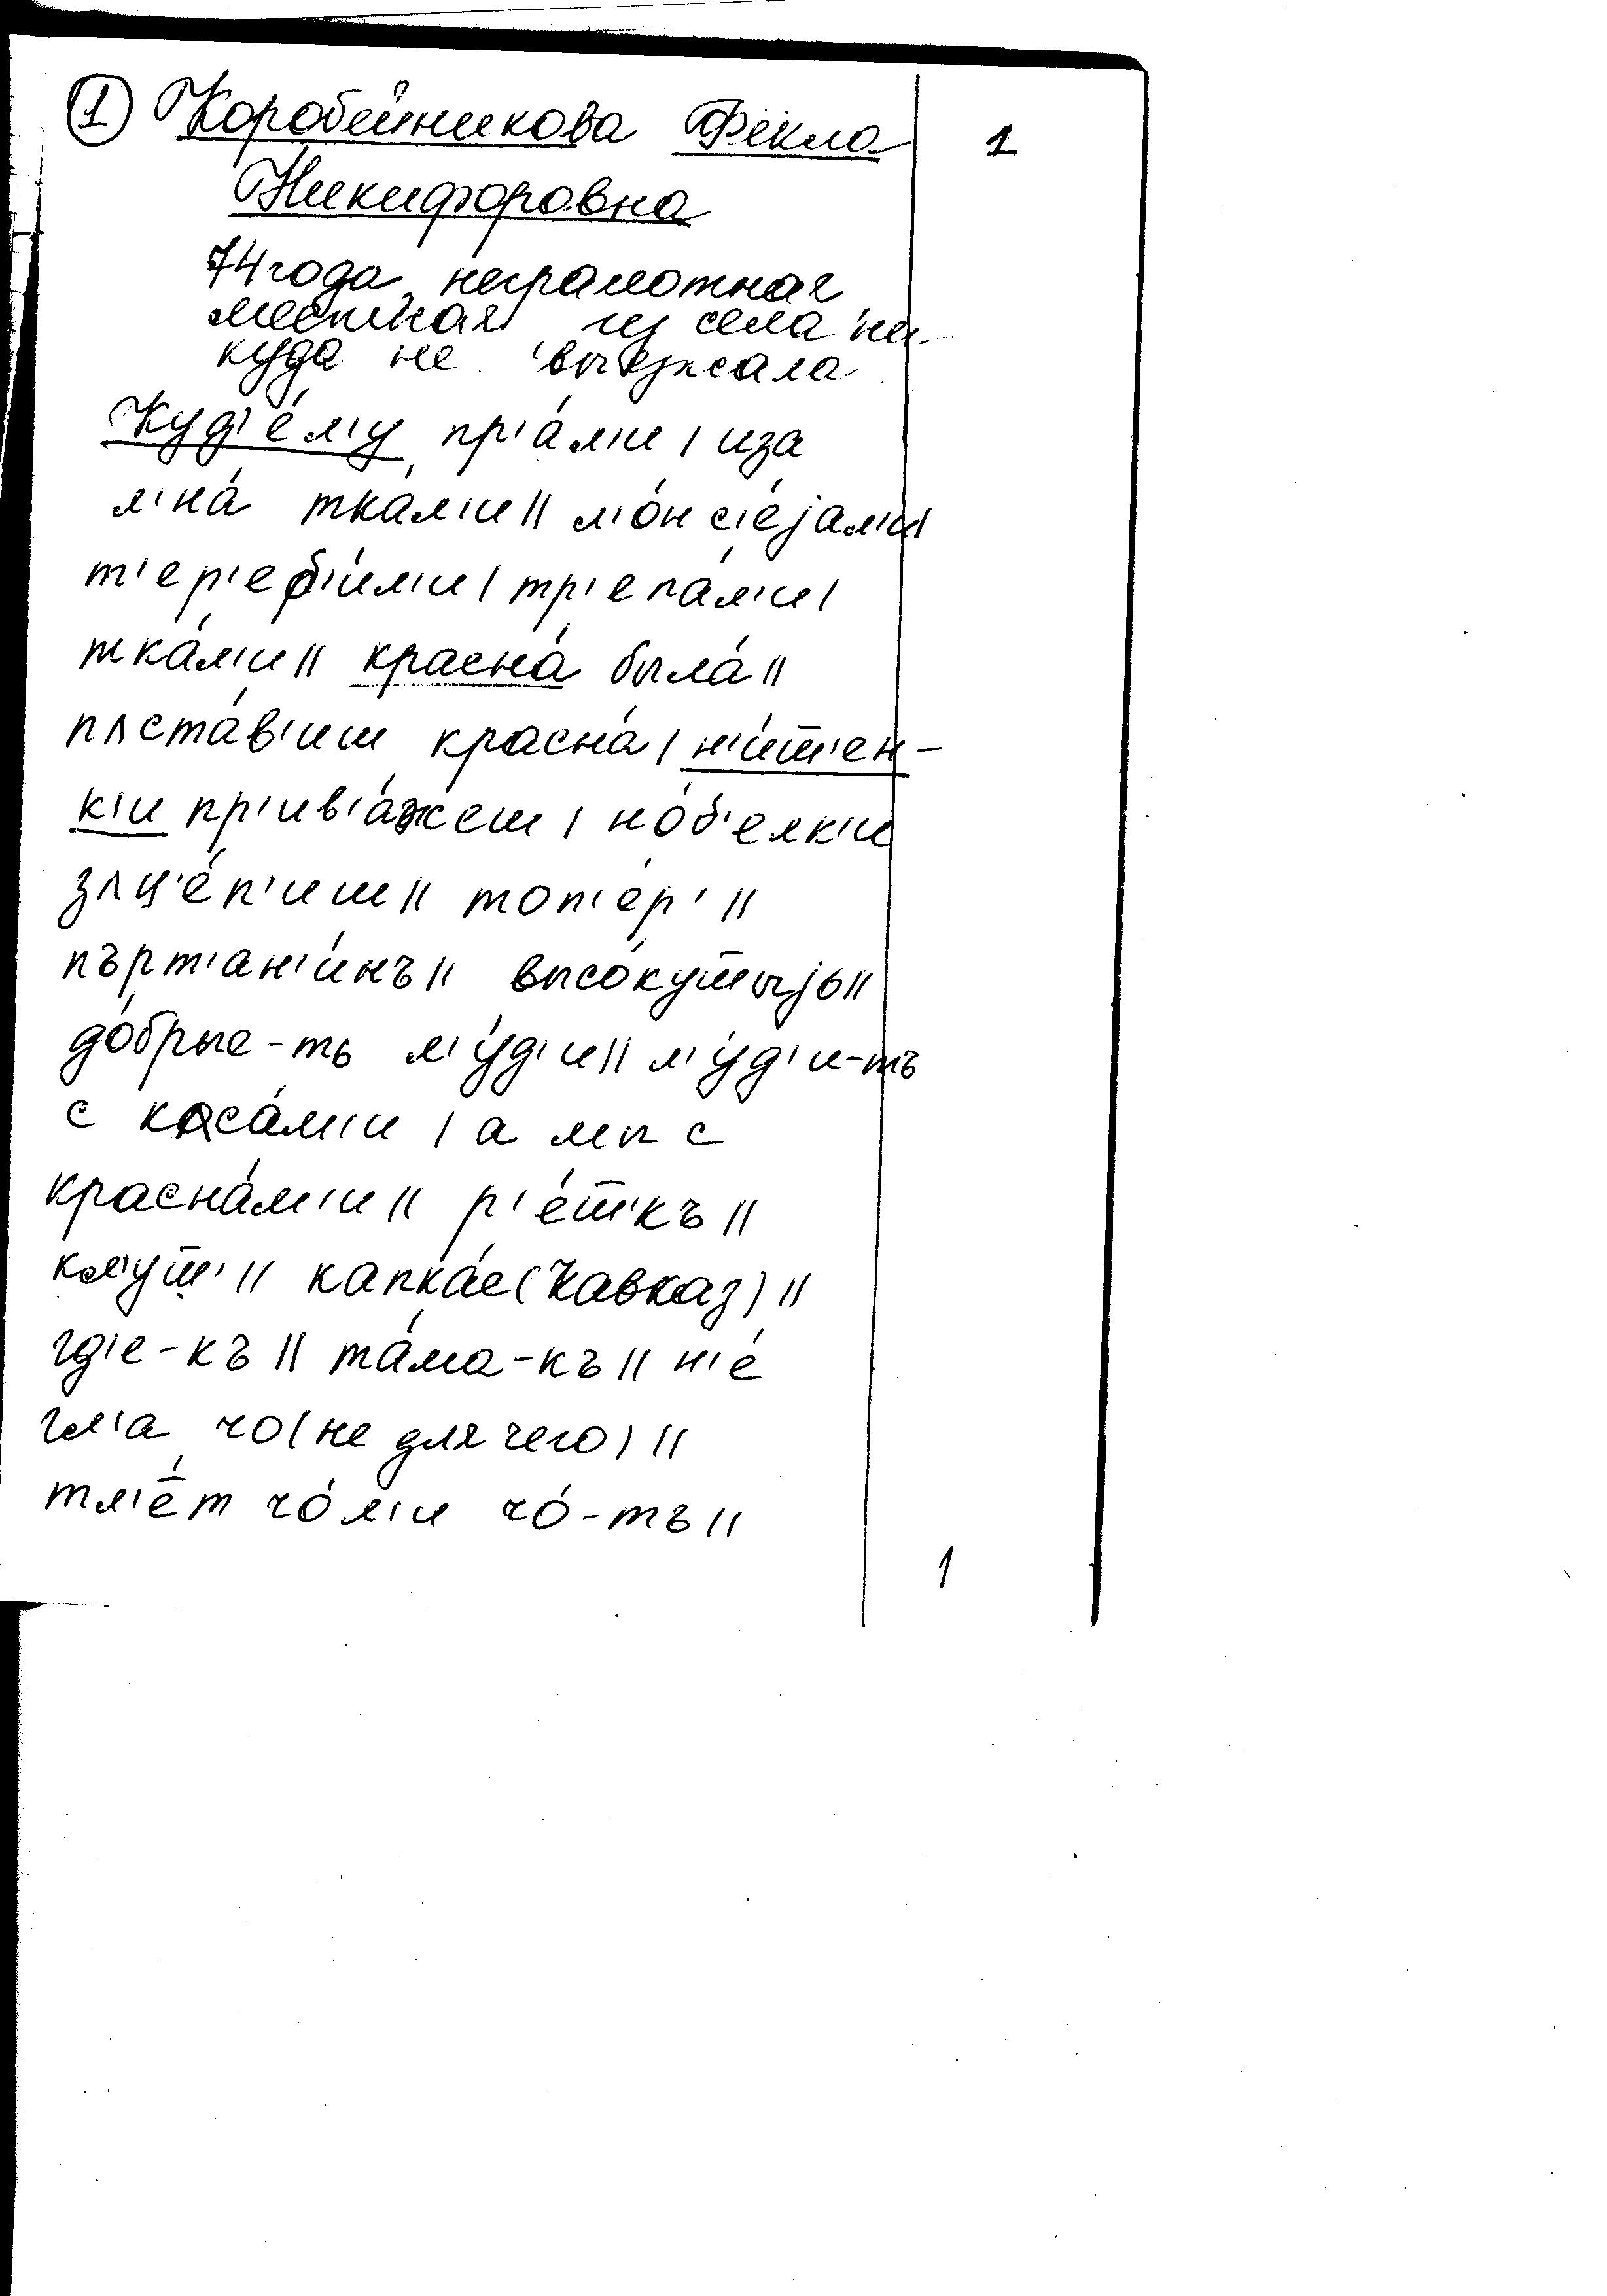 ① Коробейникова Фёкла 1
Никифоровна
74 года, неграмотная
местная из села ни-
куда не выезжала
Куд'е́л'у пр'а́л'и | иза
л'на́ тка́л'и || л'о́н с'е́јал'и |
т'ер'еб'и́л'и | тр'епа́л'и |
тка́л'и || красна́ была́ ||
пʌста́в'иш красна́ | н'и́т'ен-
к'и пр'ив'а́жеш | на́б'елк'и
зʌц'е́п'иш || топ'е́р' ||
пърт'ан'и́нъ || высо́кутыјо ||
до́брые-ть л'у́д'и || л'у́д'и-тъ
с коса́м'и | а мы с
красна́м'и || р'е́т'къ ||
кл'ут' || капка́с (Кавказ) ||
гд'е-къ || та́ма-къ || н'е́
гл'а чо (не для чего) ||
тл'е́т чо́ л'и чо́-тъ ||
1